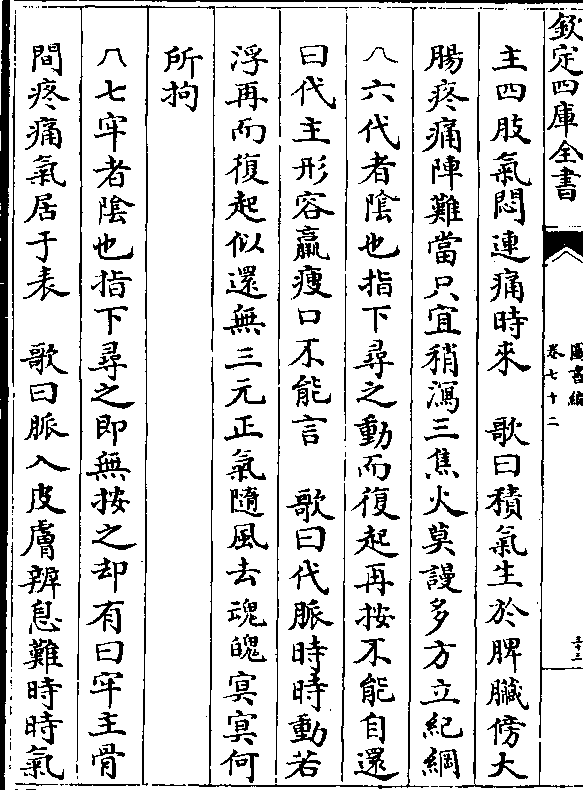 欽定四庫全書
圖書編
卷七十二
主四肢氣悶連痛時來　歌曰積氣生於脾臟傍大
腸疼痛陣難當只宜稍瀉三焦火莫謾多方立紀綱
八六代者陰也指下尋之動而復起再按不能自還
曰代主形容羸瘦口不能言　歌曰代脈時時動若
浮再而復起似還無三元正氣隨風去魂魄冥冥何
所拘
八七牢者陰也指下尋之即無按之却有曰牢主骨
間疼痛氣居于表　歌曰脈入皮膚辨息難時時氣